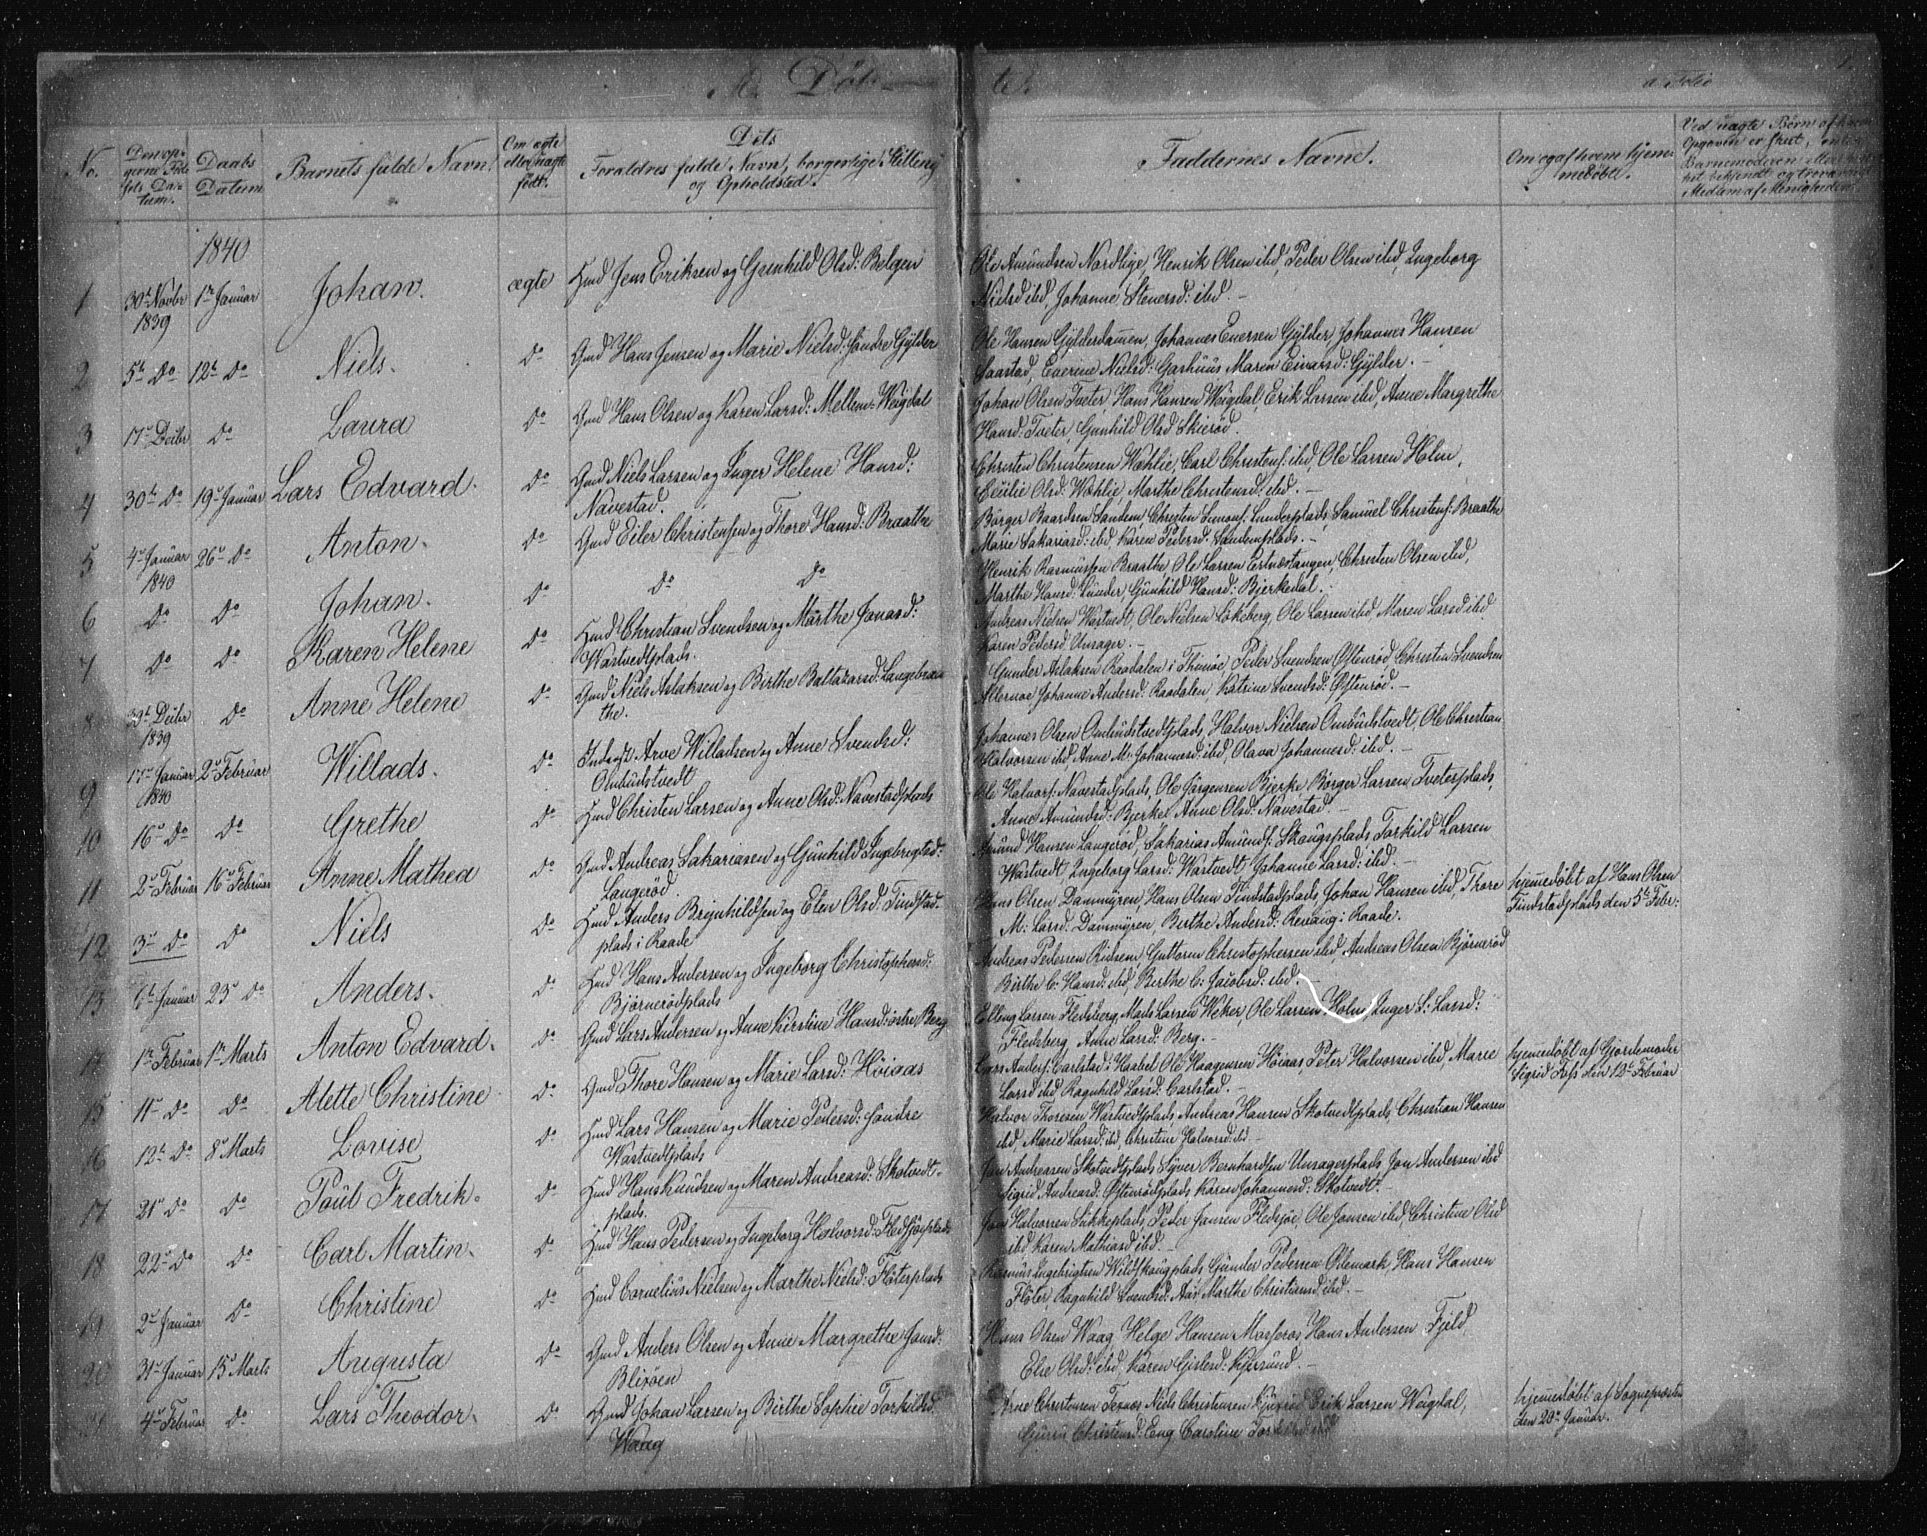 Døb
a Folio
No.
Den op-
gevne Fød-
sels Da-
tum.
Daabs
Datum
Barnets fulde Navn.
Om ægte
eller uægte
født.
Dets
Foraldres fulde Navn, borgerlige Stilling
og Opholdsted.
Faddernes Navne.
Om og af hvem hjem-
medøbt.
Ved uagte Børn af hvem
Opgaven er skeet, om
Barnemoderen eller
bekjendt og troværdigt
Medlem af Menigheden.
1840
1 30te Novbr 1839 1te Januar Johan. ægte Hmd Jens Eriksen og Gunhild Olsd: Belgen
Ole Amundsen Nordlige, Henrik Olsen ibd, Peder Olsen ibd, Ingeborg
Nielsd ibd, Johanne Stenersd: ibd.
2 5te Do 12te Do Niels. Do Gmd Hans Jensen og Marie Nielsd: søndre Gylder
Ole Hansen Gylderdammen, Johannes Evensen Gylder, Johannes Hansen
Saastad, Everine Nielsd: Gashuus Maren Einarsd: Gylder.
3 17de Decbr Do Laura Do Gmd Hans Olsen og Karen Larsd: Mellem-Weigdal
Johan Olsen Tveter, Hans Hansen Weigdal, Erik Larsen ibd, Anne Margrethe
Hansd: Tveter, Gunhild Olsd Skierød.
4 30te Do 19de Januar Lars Edvard. Do Gmd Niels Larsen og Inger Helene Hansd:
Navestad.
Christen Christensen Wæhlie, Carl Christens: ibd, Ole Larsen Holm,
Cecilie Olsd: Wæhlie, Marthe Christensd: ibd.
5 4de Januar 1840 26de Do Anton. Do Gmd Eiler Christensen og Thore Hansd: Braathe
Børger Baardsen Sandem, Christen Simons: Lunderplads, Samuel Christens: Braathe
Marie Sakariasd: ibd, Karen Pedersd: Sandemplads.
6 Do Do Johan. Do Do Do
Henrik Rasmussen Braathe, Ole Larsen Christen Olsen ibd,
Marthe Hansd: Lunder, Gunhild Hansd: Bjerkedal.
7 Do Do Karen Helene Do Hmd Christian Svendsen og Marthe Jonasd:
Wastvedtplads.
Andreas Nielsen Wastvedt, Ole Nielsen Løkeberg, Ole Larsen ibd, Maren Larsd ibd
Karen Pedersd Unsager.
8 30te Decbr 1839 Do Anne Helene Do Gmd Niels Aslaksen og Birthe Baltazarsd: Langebraa-
the.
Gunder Aslaksen Raadalen i Thunøe, Peder Svendsen Øftenrød, Christen Svendsen
Johanne Andersd: Raadalen, Katrine Svendsd: Øftenrød.
9 17de Januar 1840 2de Februar Willads. Do Arve Willadsen og Anne Svendsd:
Ombudstvedt
Johannes Olsen Ombudstvedtplads, Halvor Nielsen Ombudstvedt, Ole Christian
Halvorsen ibd, Anne M: Johannesd: ibd, Olava Johannesd: ibd.
10 16de Do Do Grethe Do Hmd Christen Larsen og Anne Olsd: Navestadplads
Ole Halvors: Navestadplads, Ole Jørgensen Bjerke, Børger Larsen Tveterplads,
Anne Amundsd: Bjerke, Anne Olsd: Navestad
11 2de Februar 16de Februar Anne Mathea Do Gmd Andreas Sakariasen og Gunhild Ingebrigtsd:
Langerød.
Amund Hansen Langerød, Sakarias Amunds: Skaugsplads, Torkild Larsen
Wastvedt, Ingeborg Larsd: Wastvedt, Johanne Larsd: ibd.
12 3de Do Do Niels Do Hmd Anders Brynhildsen og Elen Olsd: Tindstad-
plads i Raade
Hans Olsen Dammyren, Hans Olsen Tindstadplads, Johan Hansen ibd, Thore
M: Larsd: Dammyren, Birthe Andersd: Renaug i Raade.
hjemmedøbt af Hans Olsen
Tindstadplads den 5te Febr:
13 6te Januar 23de Do Anders. Do Hmd Hans Andersen og Ingeborg Christophersd:
Bjørnerødplads
Andreas Pedersen Guttorm Christophersen ibd, Andreas Olsen Bjørnerød
Birthe C: Hansd: ibd, Berthe C: Jacobsd: ibd.
14 1te Februar 1te Marts Anton Edvard. Do Gmd Lars Andersen og Anne Kirstine Hansd: østre Berg
Elling Larsen Fledsberg, Mads Larsen Weker, Ole Larsen Holm, Inger S: Larsd:
Fledsberg, Anne Larsd: Berg.
15 11te Do Do Alette Christine Do Gmd Thore Hansen og Marie Larsd: Høiaas
Lars Anders: Carlstad i Haabøl, Ole Haagensen Høiaas, Peter Halvorsen ibd, Marie
Larsd ibd, Ragnhild Larsd: Carlstad.
hjemmedøbt af Gjordemoder
Sigrid Foss den 12te Februar
16 12te Do 8de Marts Lovise Do Hmd Lars Hansen og Marie Pedersd: søndre
Wastvedtplads
Halvor Thoresen Wastvedtplads, Andreas Hansen Skotvedtplads, Christian Hansen
ibd, Marie Larsd: ibd, Christine Halvorsd: ibd
17 21de Do Do Paul Fredrik. Do Hmd Hans Knudsen og Maren Andreasd: Skotvedt-
plads.
Jon Andreasen Skotvedtplads, Syver Bernhardsen Unsagerplads, Jon Andersen ibd
Sigrid Andreasd: Øftenrødplads, Karen Johannesd: Skotvedt.
18 22de Do Do Carl Martin. Do Hmd Hans Pedersen og Ingeborg Halvorsd: Fledsjøeplads
Jon Halvorsen Peder Jansen Fledsjøe, Ole Jonsen ibd, Christine Olsd
ibd, Karen Mathiasd ibd.
19 2de Januar Do Christine Do Hmd Cornelius Nielsen og Marthe Nielsd: Fløterplads
Rasmus Ingebrigtsen Wildskaugplads, Gunder Pedersen Odemark, Hans Hansen
Fløter, Ragnhild Svendsd: Aas, Marthe Christiansd ibd.
20 31te Januar 15de Marts Augusta Do Gmd Anders Olsen og Anne Margrethe Jansd:
Blixøen
Hans Olsen Waag, Helge Hansen Mosseros, Hans Andersen Fjeld,
Else Olsd: ibd, Karen Gislesd: Kjersund.
21 4de Februar Do Lars Theodor. Do Gmd Johan Larsen og Birthe Sophie Torkildsd
Waag
Arne Christensen Niels Christensen Erik Larsen Weigdal,
Christensd: Eng, Caroline
hjemmedøbt af Sognepræsten
den 20de Januar.